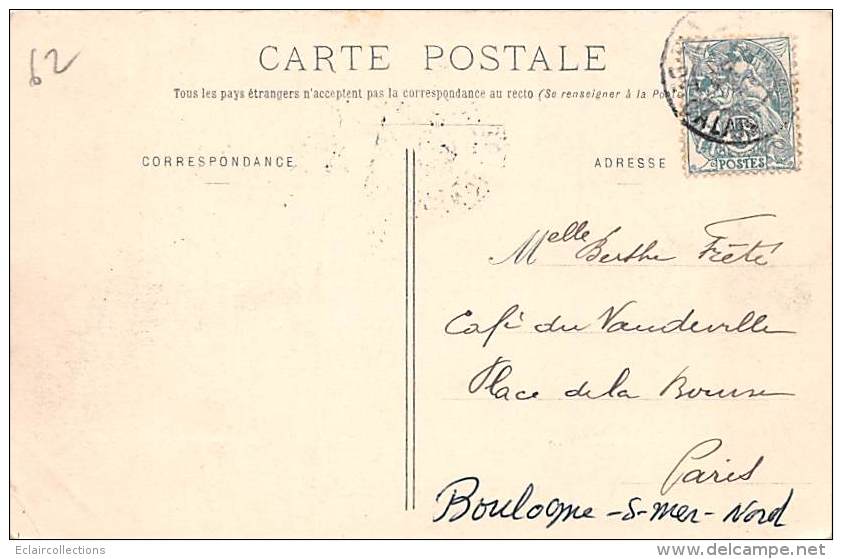 62
CARTE POSTALE
Tous les pays étrangers n'acceptent pas la correspondance au recto (Se renseigner à la Poste
CORRESPONDANCE
ADRESSE
POSTES
Melle Berthe Frété
Café du Vaudeville
Place de la Bourse
Paris
Boulogne-s-mer-Nord
Eclaircollections
delcampe.net